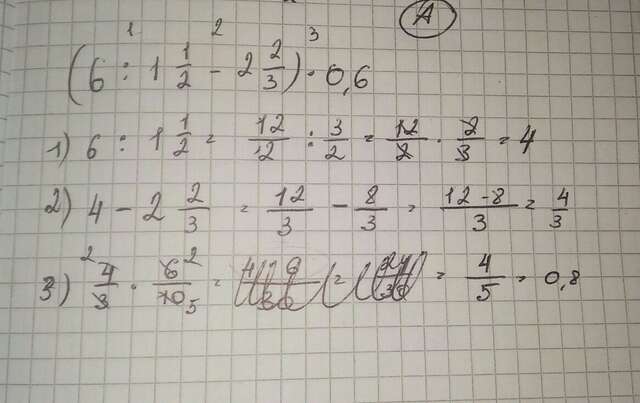 A
1 2 3
(6 : 1 1/2 - 2 2/3) · 0,6
1) 6 : 1 1/2 = 12/2 : 3/2 = 12/2 · 2/3 = 4
2) 4 - 2 2/3 = 12/3 - 8/3 = 12-8/3 = 4/3
3) 2 4/3 · 6 2/10 5 = = 4/5 = 0,8